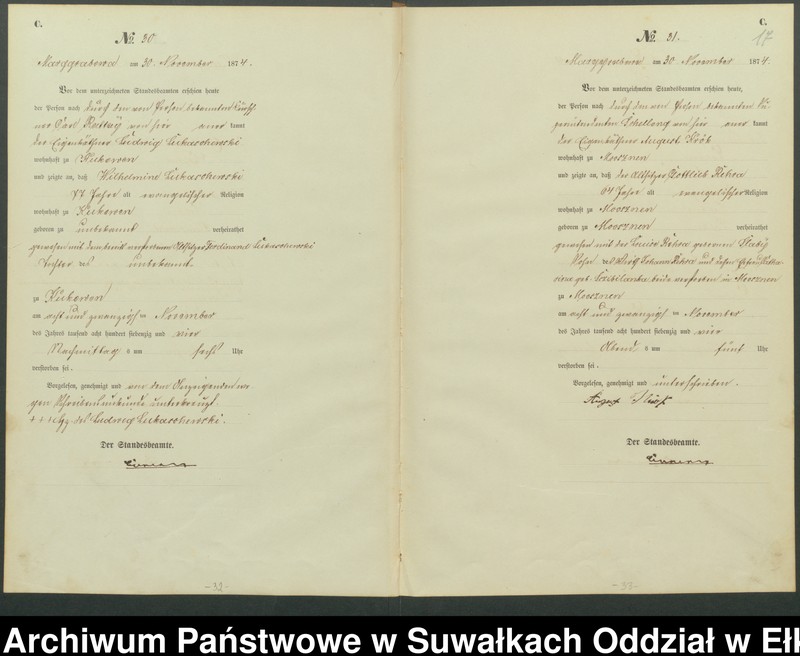 C.
№ 30.
Marggrabowa am 30. November 1874.
Vor dem unterzeichneten Standesbeamten erschien heute
der Person nach durch den von Person bekannten
von hier aner kannt
der Eigenkäthner Ludwig Lukaschewski
wohnhaft zu Kukowen
und zeigte an, daß Wilhelmine Lukaschewski
77 Jahre alt evangelischer Religion
wohnhaft zu Kukowen
geboren zu unbekannt verheirathet
gewesen mit dem bereits verstorbenen Altsitzer Ferdinand Lukaschewski
Tochter des unbekannt
zu Kukowen
am acht und zwanzigsten November
des Jahres tausend acht hundert siebenzig und vier
Nachmittag s um sechs Uhr
verstorben sei.
Vorgelesen, genehmigt und von dem Anzeigenden we-
gen Schreibensunkunde unterkreuzt.
+++ Hz. des Ludwig Lukaschewski.
Der Standesbeamte.
-32-
C.
17
№ 31.
Marggrabowa am 30. November 1874.
Vor dem unterzeichneten Standesbeamten erschien heute,
der Person nach durch den von Person bekannten Su-
perintendenten Schellong von hier aner kannt
der Eigenkäthner August
wohnhaft zu Moosznen
und zeigte an, daß der Altsitzer Gottlieb
64 Jahre alt evangelischer Religion
wohnhaft zu Moosznen
geboren zu Moosznen verheirathet
gewesen mit der Louise geborenen
Sohn des Johann und dessen Ehefrau Katha-
rina geb. beide verstorben in Moosznen
zu Moosznen
am acht und zwanzigsten November
des Jahres tausend acht hundert siebenzig und vier
Abend s um fünf Uhr
verstorben sei.
Vorgelesen, genehmigt und unterschrieben.
August
Der Standesbeamte.
-33-
Archiwum Państwowe w Suwałkach Oddział w Ełk